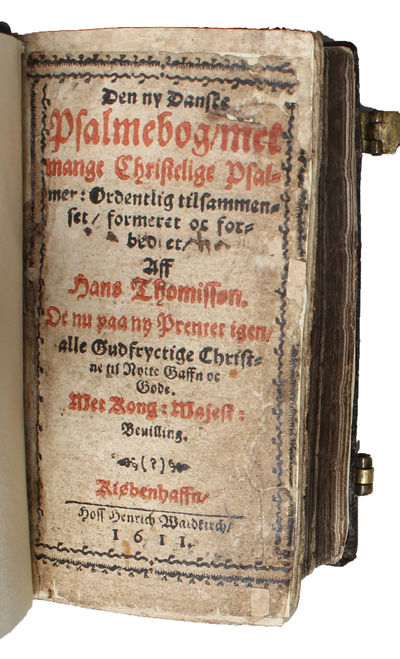 Den ny Danske
Psalmebog/ met
mange Christelige Psal-
mer: Ordentlig tilsammen-
set/ formeret oc for-
bedret/
Aff
Hans Thomissøn.
Oc nu paa ny Prentet igen/
alle Gudfryctige Christ-
ne til Nytte Gaffn oc
Gode.
Met Kong: Majest:
Bevilling.
(?)
Kiøbenhaffn/
Hoss Henrich Waldkirch/
1611.